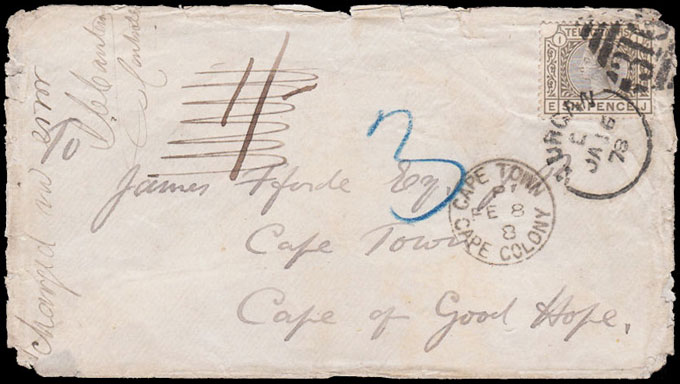 POSTAGE
SIX PENCE
E J
LURGAN
E
JA 16
78
CAPE TOWN
FE 8
8
CAPE COLONY
3
James Fforde Esq.
Cape Town
Cape of Good Hope.
Charged in error
To